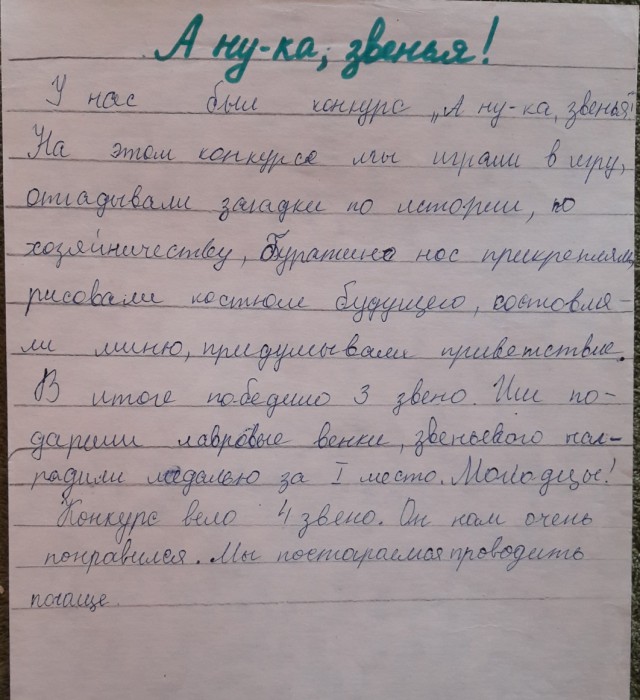 А ну-ка, звенья!
У нас был конкурс „А ну-ка, звенья!"
На этом конкурсе мы играли в игру,
отгадывали загадки по истории, по
хозяйничеству, Буратино нос прикрепляли,
рисовали костюм будущего, состовля-
ли миню, придумывали приветствие.
В итоге победило 3 звено. Им по-
дарили лавровые венки, звеньевого наг-
радили медалью за I место. Молодцы!
Конкурс вело 4 звено. Он нам очень
понравился. Мы постараемся проводить
почаще.